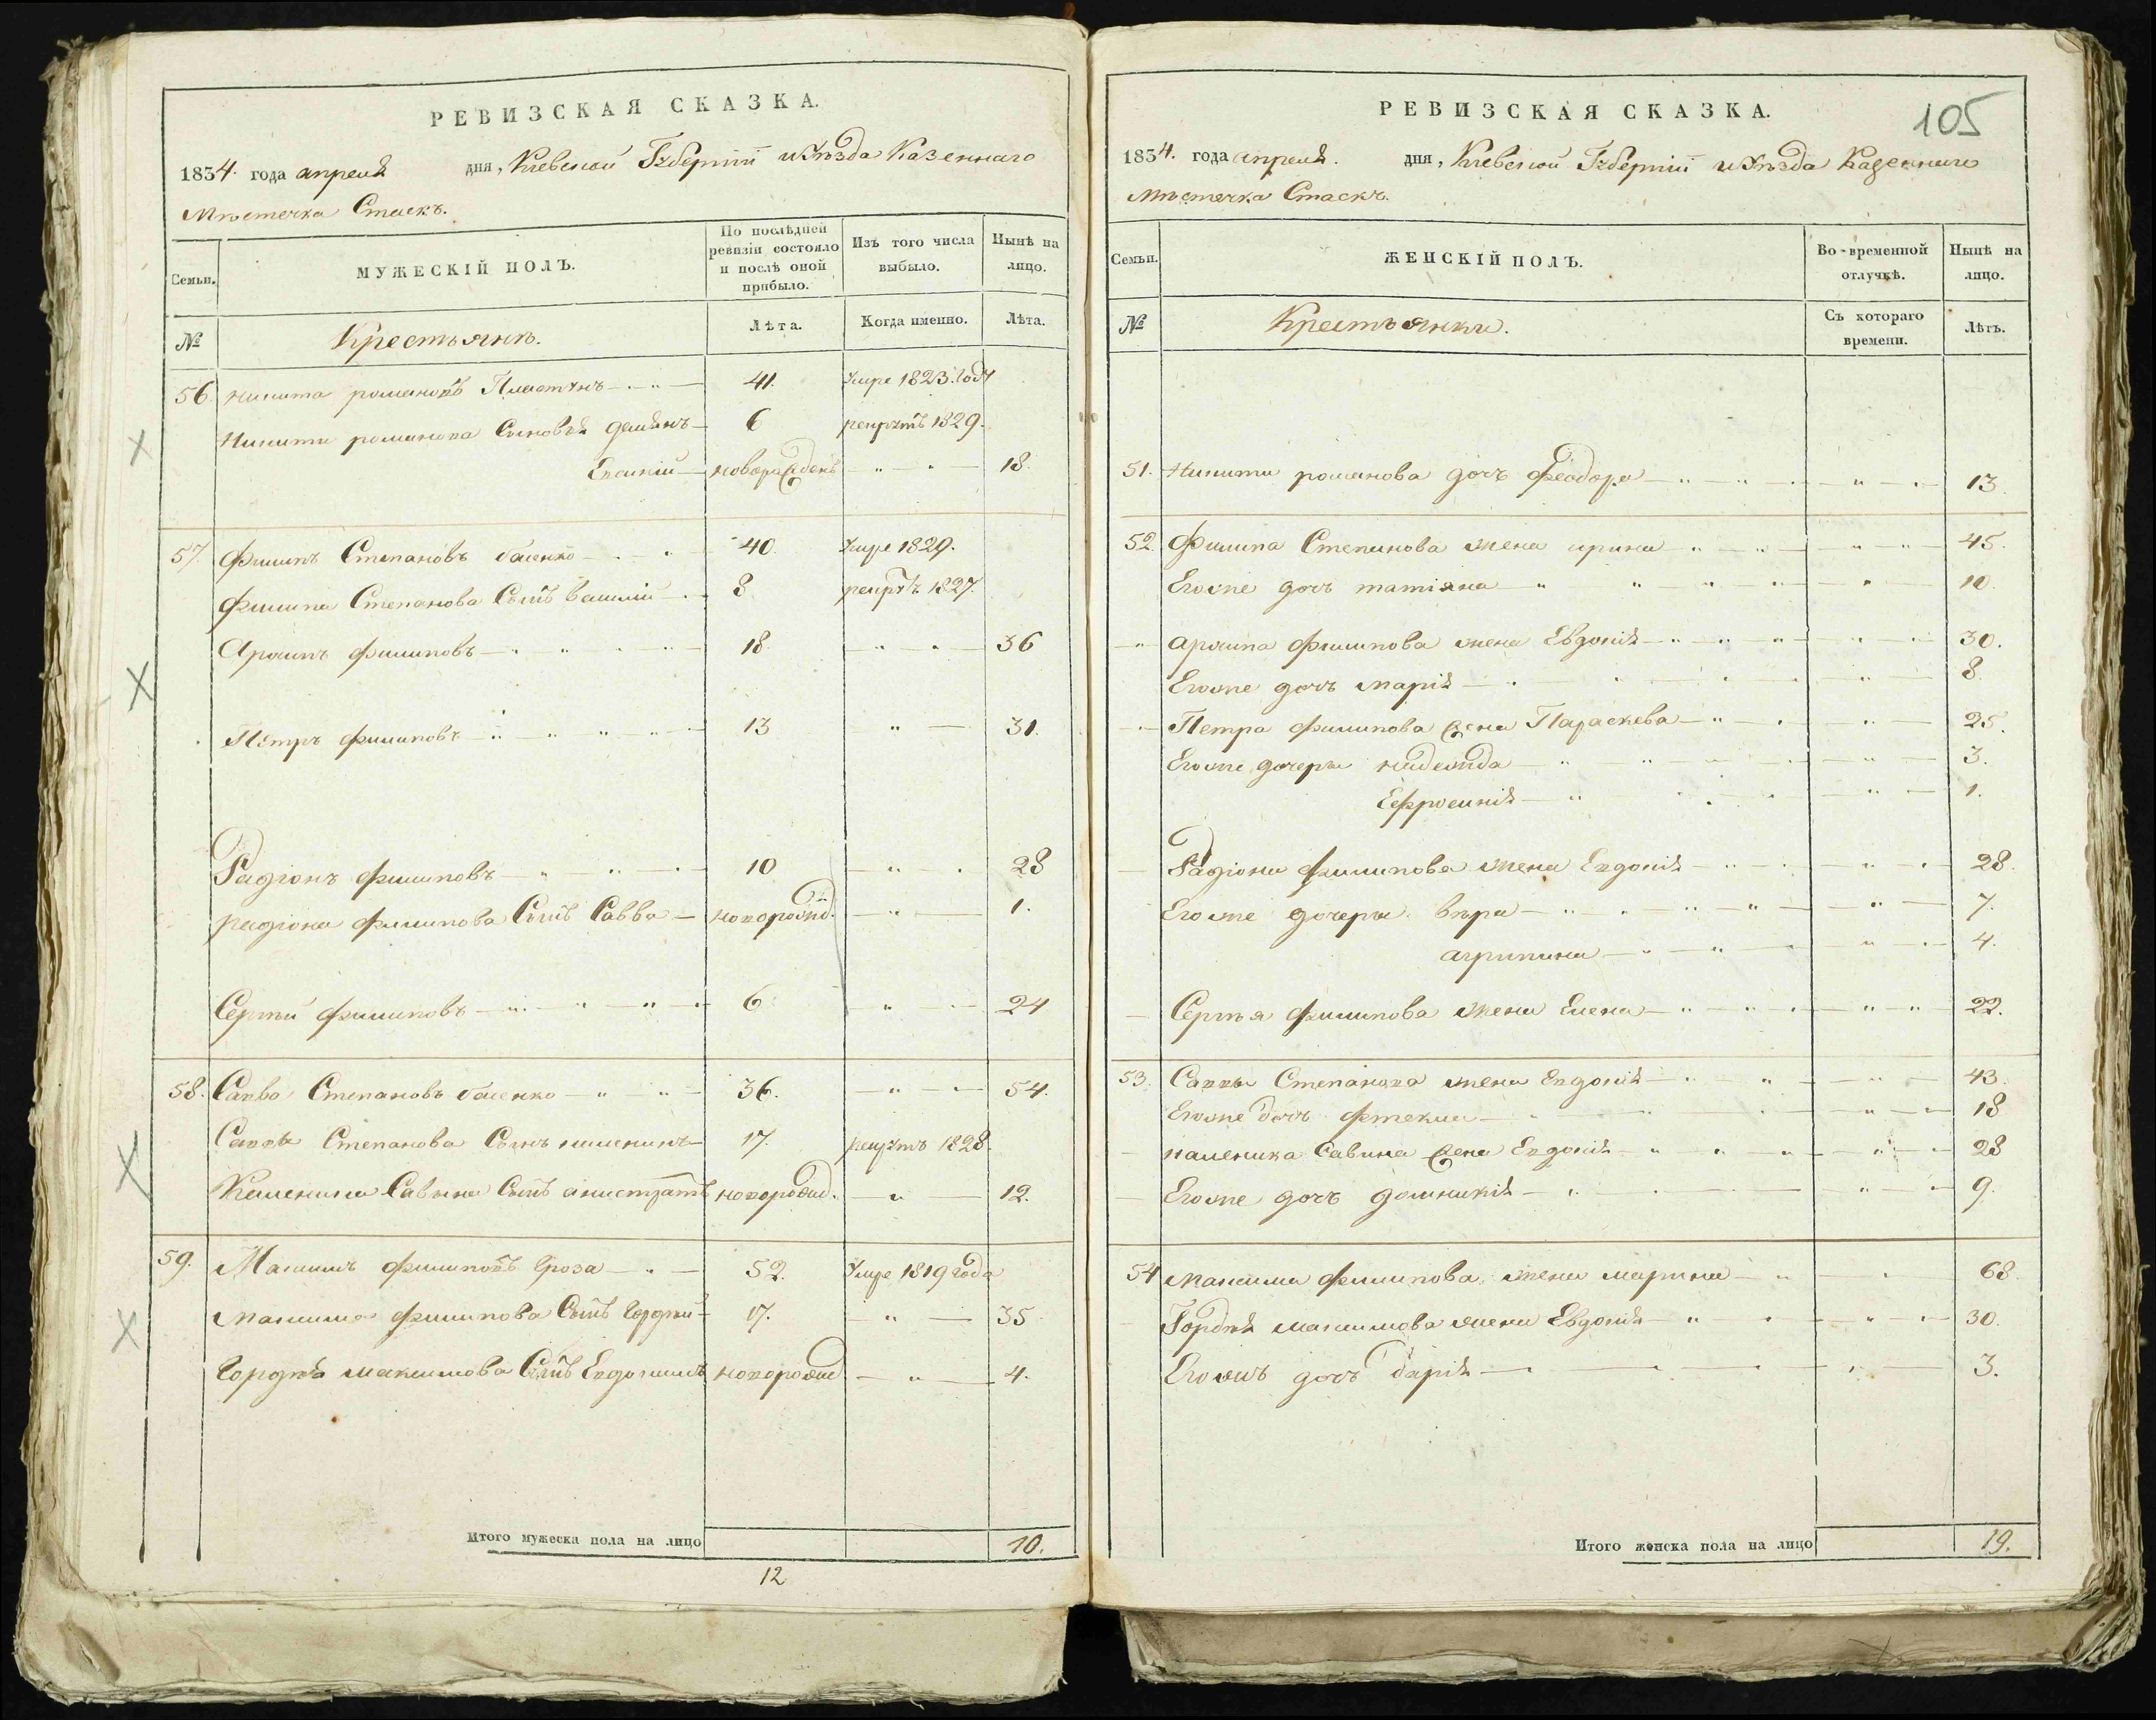 РЕВИЗСКАЯ СКАЗКА.
1834. года апреля дня, Киевской Губерніи и уѣзда Казеннаго
Мѣстечка Стаекъ.
Семьи. МУЖЕСКІЙ ПОЛЪ. По послѣдней ревизіи состояло и послѣ оной прибыло. Изъ того числа выбыло. Нынѣ на лицо.
№ Крестьянъ. Лѣта. Когда именно. Лѣта.
56. Никита романовъ Пластунъ 41. Умре 1823. году
Никиты романова Сыновья демянъ 6 рекрутъ 1829.
новорожденъ 18.
57. Филипъ Степановъ баленко 40. Умре 1829.
Филипа Степанова Сынъ василій 8 рекрутъ 1827.
Архипъ филиповъ 18. 36
Петръ филиповъ 13 31.
Радіонъ филиповъ 10 28
радіона филипова Сынъ Савва новорожд. 1.
Сергѣй филиповъ 6. 24
58. Савва Степановъ баленко 36. 54.
Саввы Степанова Сынъ каленикъ 17. рекрутъ 1828.
Каленика Савина Сынъ анистратъ новорожд. 12.
59. Максимъ филиповъ Гроза 52. Умре 1819 года
максима филипова Сынъ Гордѣй 17. 35
Гордѣя максимова Сынъ Евдокимъ новорожд. 4.
Итого мужеска пола на лицо 10.
12
105
РЕВИЗСКАЯ СКАЗКА.
1834. года апреля. дня, Киевской Губерніи и уѣзда Казеннаго
Мѣстечка Стаекъ.
Семьи. ЖЕНСКІЙ ПОЛЪ. Во-временной отлучкѣ. Нынѣ на лицо.
№ Крестьянки. Съ котораго времени. Лѣтъ.
51. Никиты романова дочь феодора 13.
52. Филипа Степанова жена ирина 45.
Егожѣ дочь татіяна 10.
архипа филипова жена Евдокія 30.
Егоже дочь марія 8.
Петра филипова жена Параскева 25.
Егоже дочери надежда 3.
Ефросинія 1.
Радіона филипова жена Евдокія 28.
Егоже дочери вѣра 7.
агрипина 4.
Сергѣя филипова жена Елена 22.
53. Саввы Степанова жена Евдокія 43.
Егоже дочь фтекла 18
каленика Савина жена Евдокія 28
Егоже дочь домникія 9.
54 максима филипова жена марина 68.
Гордѣя максимова жена Евдокія 30.
Егожъ дочь дарія 3.
Итого женска пола на лицо 19.